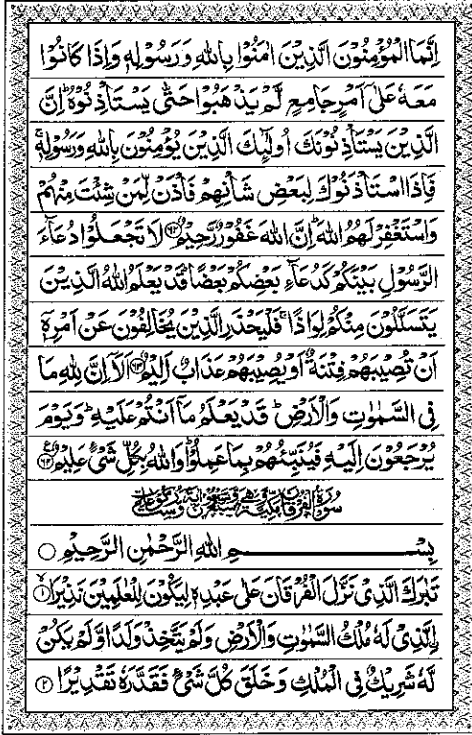 اِنَّمَا الْمُؤْمِنُوْنَ الَّذِيْنَ اٰمَنُوْا بِاللّٰهِ وَرَسُوْلِهٖ وَاِذَا كَانُوْا
مَعَهٗ عَلٰٓى اَمْرٍ جَامِعٍ لَّمْ يَذْهَبُوْا حَتّٰى يَسْتَاْذِنُوْهُ ؕ اِنَّ
الَّذِيْنَ يَسْتَاْذِنُوْنَكَ اُولٰٓئِكَ الَّذِيْنَ يُؤْمِنُوْنَ بِاللّٰهِ وَرَسُوْلِهٖ ۚ
فَاِذَا اسْتَاْذَنُوْكَ لِبَعْضِ شَاْنِهِمْ فَاْذَنْ لِّمَنْ شِئْتَ مِنْهُمْ
وَاسْتَغْفِرْ لَهُمُ اللّٰهَ ؕ اِنَّ اللّٰهَ غَفُوْرٌ رَّحِيْمٌ ﴿۶۲﴾ لَا تَجْعَلُوْا دُعَآءَ
الرَّسُوْلِ بَيْنَكُمْ كَدُعَآءِ بَعْضِكُمْ بَعْضًا ؕ قَدْ يَعْلَمُ اللّٰهُ الَّذِيْنَ
يَتَسَلَّلُوْنَ مِنْكُمْ لِوَاذًا ۚ فَلْيَحْذَرِ الَّذِيْنَ يُخَالِفُوْنَ عَنْ اَمْرِهٖٓ
اَنْ تُصِيْبَهُمْ فِتْنَةٌ اَوْ يُصِيْبَهُمْ عَذَابٌ اَلِيْمٌ ﴿۶۳﴾ اَلَآ اِنَّ لِلّٰهِ مَا
فِى السَّمٰوٰتِ وَالْاَرْضِ ؕ قَدْ يَعْلَمُ مَآ اَنْتُمْ عَلَيْهِ ؕ وَيَوْمَ
يُرْجَعُوْنَ اِلَيْهِ فَيُنَبِّئُهُمْ بِمَا عَمِلُوْا ؕ وَاللّٰهُ بِكُلِّ شَىْءٍ عَلِيْمٌ ﴿۶۴﴾
سُوْرَةُ الْفُرْقَانِ مَكِّيَّةٌ
بِسْمِ اللّٰهِ الرَّحْمٰنِ الرَّحِيْمِ ○
تَبٰرَكَ الَّذِىْ نَزَّلَ الْفُرْقَانَ عَلٰى عَبْدِهٖ لِيَكُوْنَ لِلْعٰلَمِيْنَ نَذِيْرًا ﴿۱﴾
اِلَّذِىْ لَهٗ مُلْكُ السَّمٰوٰتِ وَالْاَرْضِ وَلَمْ يَتَّخِذْ وَلَدًا وَّلَمْ يَكُنْ
لَّهٗ شَرِيْكٌ فِى الْمُلْكِ وَخَلَقَ كُلَّ شَىْءٍ فَقَدَّرَهٗ تَقْدِيْرًا ﴿۲﴾